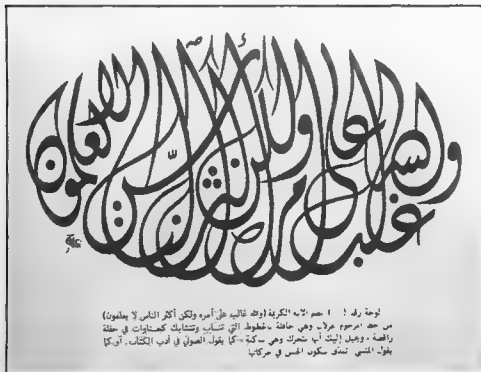 والله غالب على أمره ولكن أكثر الناس لا يعلمون
لوحة رقم ( ) ختم الآية الكريمة (والله غالب على أمره ولكن أكثر الناس لا يعلمون)
من خط المرحوم غزلان وهي حافلة بالخطوط التي تنساب وتتشابك كحسناوات في حفلة
راقصة . ويخيل إليك أنها تتحرك وهي ساكنة » كما يقول الصولي في أدب الكتاب، أو كما
يقول المتنبي سكون الحسن في حركاتها